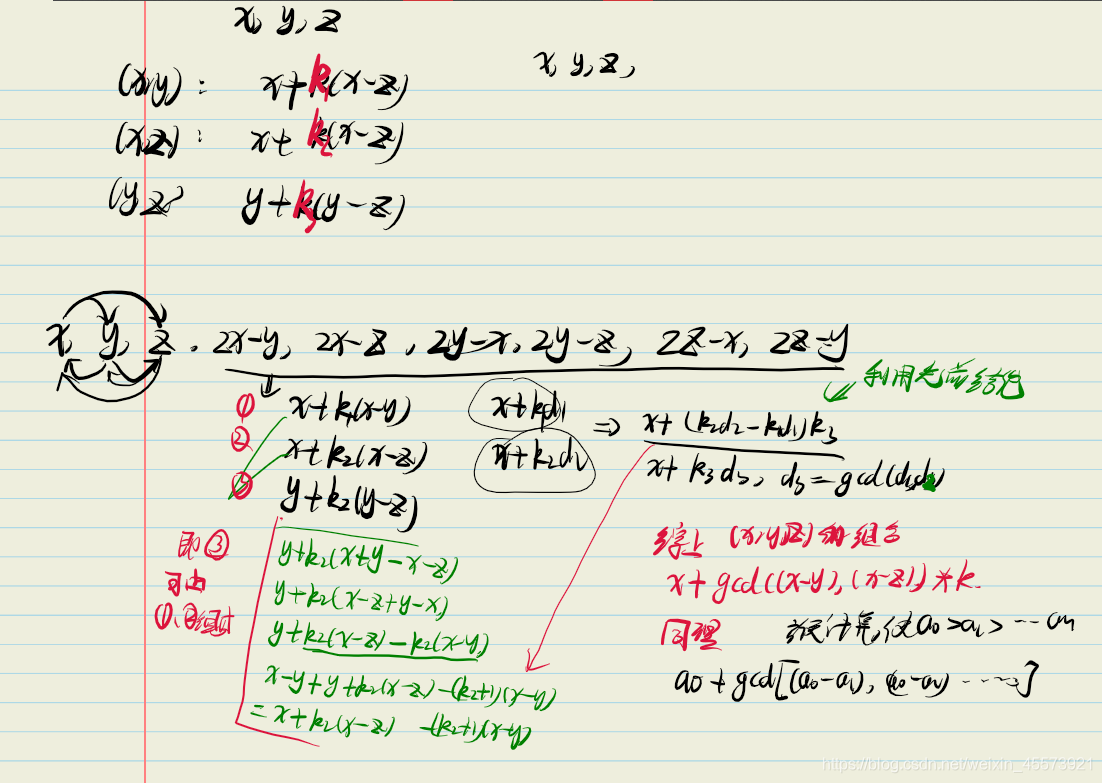 x, y, z
x, y, z,
(x,y): x+k₁(x-z)
(x,z): x+k₂(x-z)
(y,z) y+k₃(y-z)
x, y, z, 2x-y, 2x-z, 2y-x, 2y-z, 2z-x, 2z-y
利用先前结论
① x+k₁(x-y)
② x+k₂(x-z)
③ y+k₂(y-z)
x+k₁d₁
x+k₂d₂
⇒ x+(k₂d₂-k₁d₁)k₃
x+k₃d₃, d₃=gcd(d₁,d₂)
即③
可由
①、②组成
y+k₂(x+y-x-z)
y+k₂(x-z+y-x)
y+k₂(x-z)-k₂(x-y)
x-y+y+k₂(x-z)-(k₂+1)(x-y)
=x+k₂(x-z) -(k₂+1)(x-y)
综上 (x,y,z)的组合
x+gcd((x-y),(x-z))*k.
同理
计算,使a₀>a₁>…aₙ
a₀+gcd[(a₀-a₁), (a₀-a₂)……]
https://blog.csdn.net/weixin_45573921